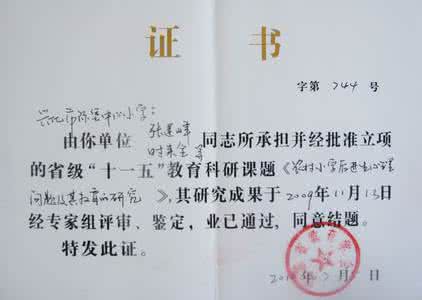 证书
字第 744 号
兴化市 中心小学：
由你单位 张建峰 时来金等 同志所承担并经批准立项
的省级“十一五”教育科研课题《农村小学后进生心理
问题及其教育的研究》，其研究成果于2009年11月13日
经专家组评审、鉴定，业已通过，同意结题。
特发此证。